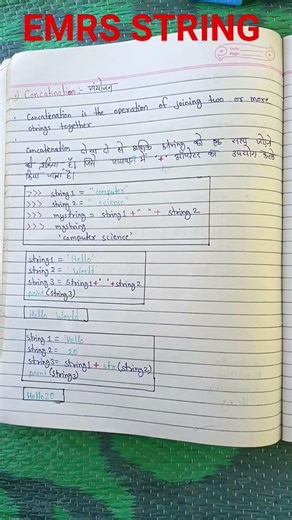 EMRS STRING
Concatination:- संयोजन
• Concatenation is the operation of joining two or more
strings together
Concatenation दो या दो से अधिक string को एक साथ जोड़ने
की प्रक्रिया है। जिसे पायथन में "+" ऑपरेटर का उपयोग करके
किया जाता है।
>>> string1 = "computer"
>>> string2 = "science"
>>> mystring = string1 + " " + string2
>>> mystring
'computer science'
string1 = "Hello"
string2 = "World"
string3 = string1+" "+string2
print(string3)
Hello World
string1 = "Hello
string2 = 20
string3= string1 + str(string2)
print(string3)
Hello20